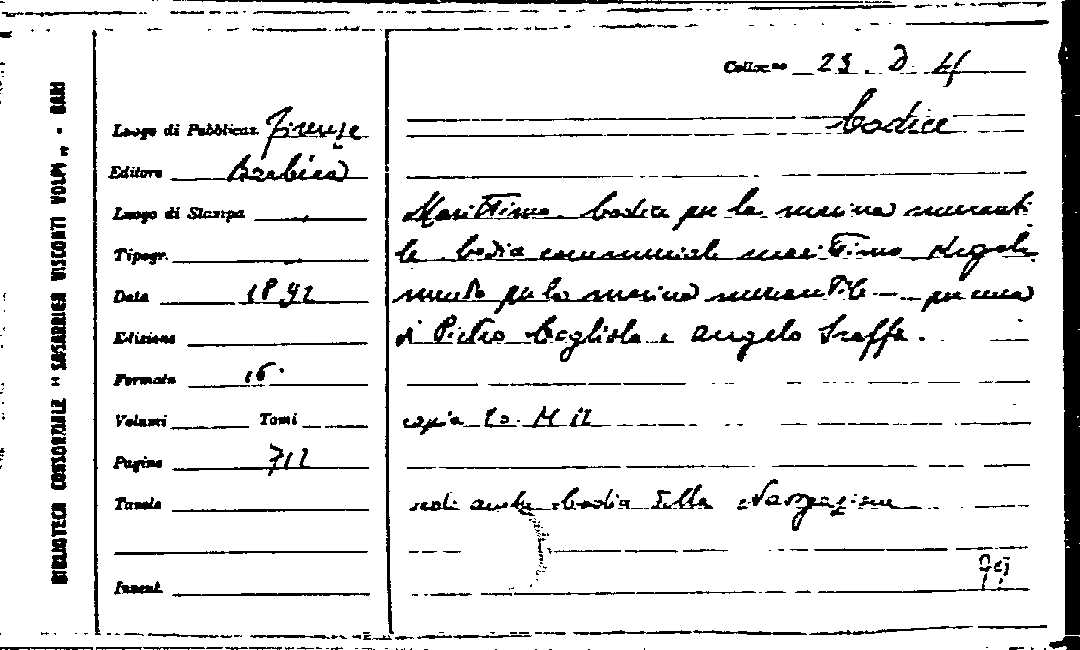 BIBLIOTECA CONSORZIALE "SAGARRIGA VISCONTI VOLPI" - BARI
Colloc.ne 23. D 4
Luogo di Pubblicaz. Firenze
Codice
Editore Barbèra
Luogo di Stampa
Marittimo. Codice per la marina mercanti
Tipogr.
le Codice commerciale marittimo Regola
Data 1892
mento per la marina mercantile — per cura
Edizione
di Pietro Cogliolo e Angelo Sraffa.
Formato 16.
Volumi Tomi
copia 20. M 12
Pagine 712
Tavole
vedi anche Codice della Navigazione
Invent.